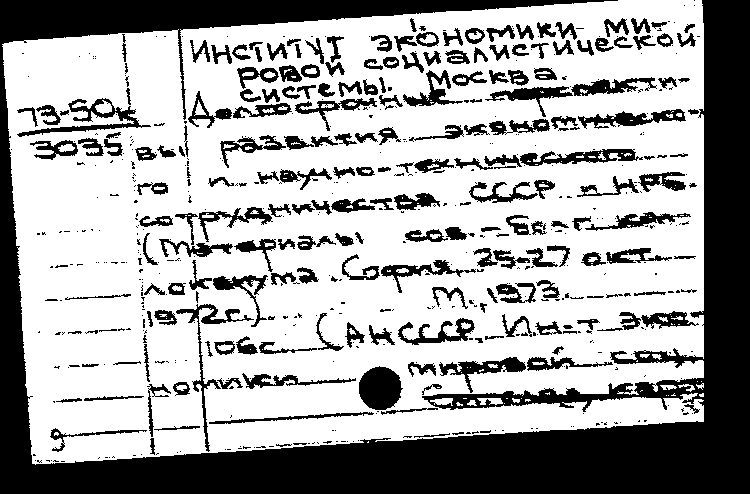 1.
ИНСТИТУТ ЭКОНОМИКИ МИ-
РОВОЙ СОЦИАЛИСТИЧЕСКОЙ
СИСТЕМЫ. МОСКВА.
73-50к
3035
Долгосрочные перспекти-
вы развития экономическо-
го и научно-технического
сотрудничества СССР и НРБ.
(Материалы сов.-болг. кол-
локвиума. София, 25-27 окт.
1972г.) М., 1973.
106с. (АН СССР. Ин-т эко-
номики мировой соц.
См. след. карт
9